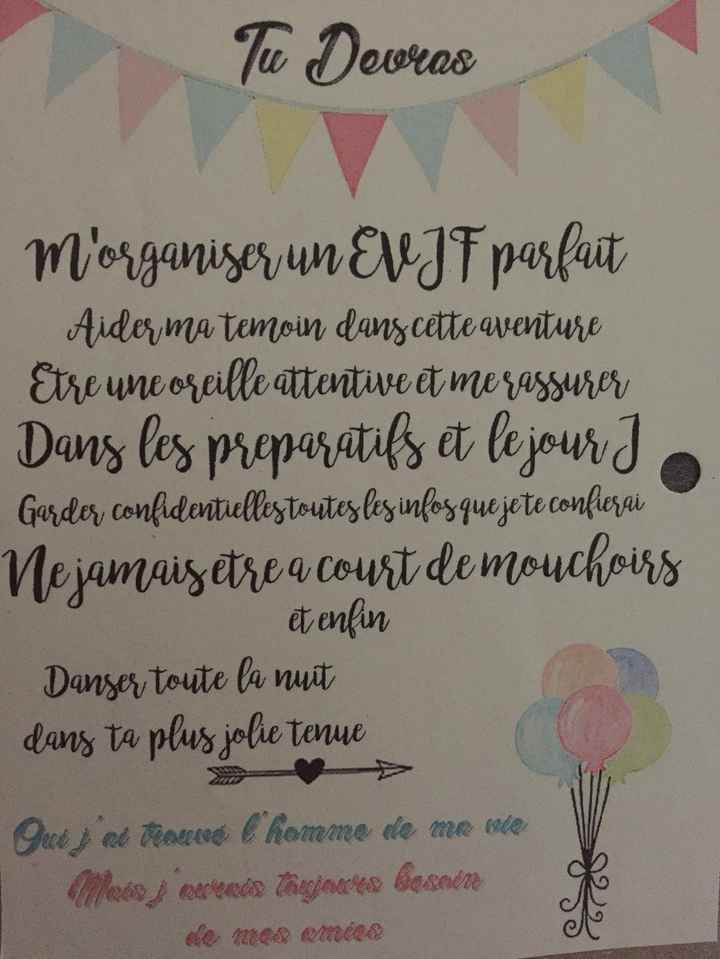 Tu Devras
M'organiser un EVJF parfait
Aider ma temoin dans cette aventure
Etre une oreille attentive et me rassurer
Dans les preparatifs et le jour J
Garder confidentielles toutes les infos que je te confierai
Ne jamais etre a court de mouchoirs
et enfin
Danser toute la nuit
dans ta plus jolie tenue
Oui j'ai trouvé l'homme de ma vie
Mais j'aurais toujours besoin
de mes amies